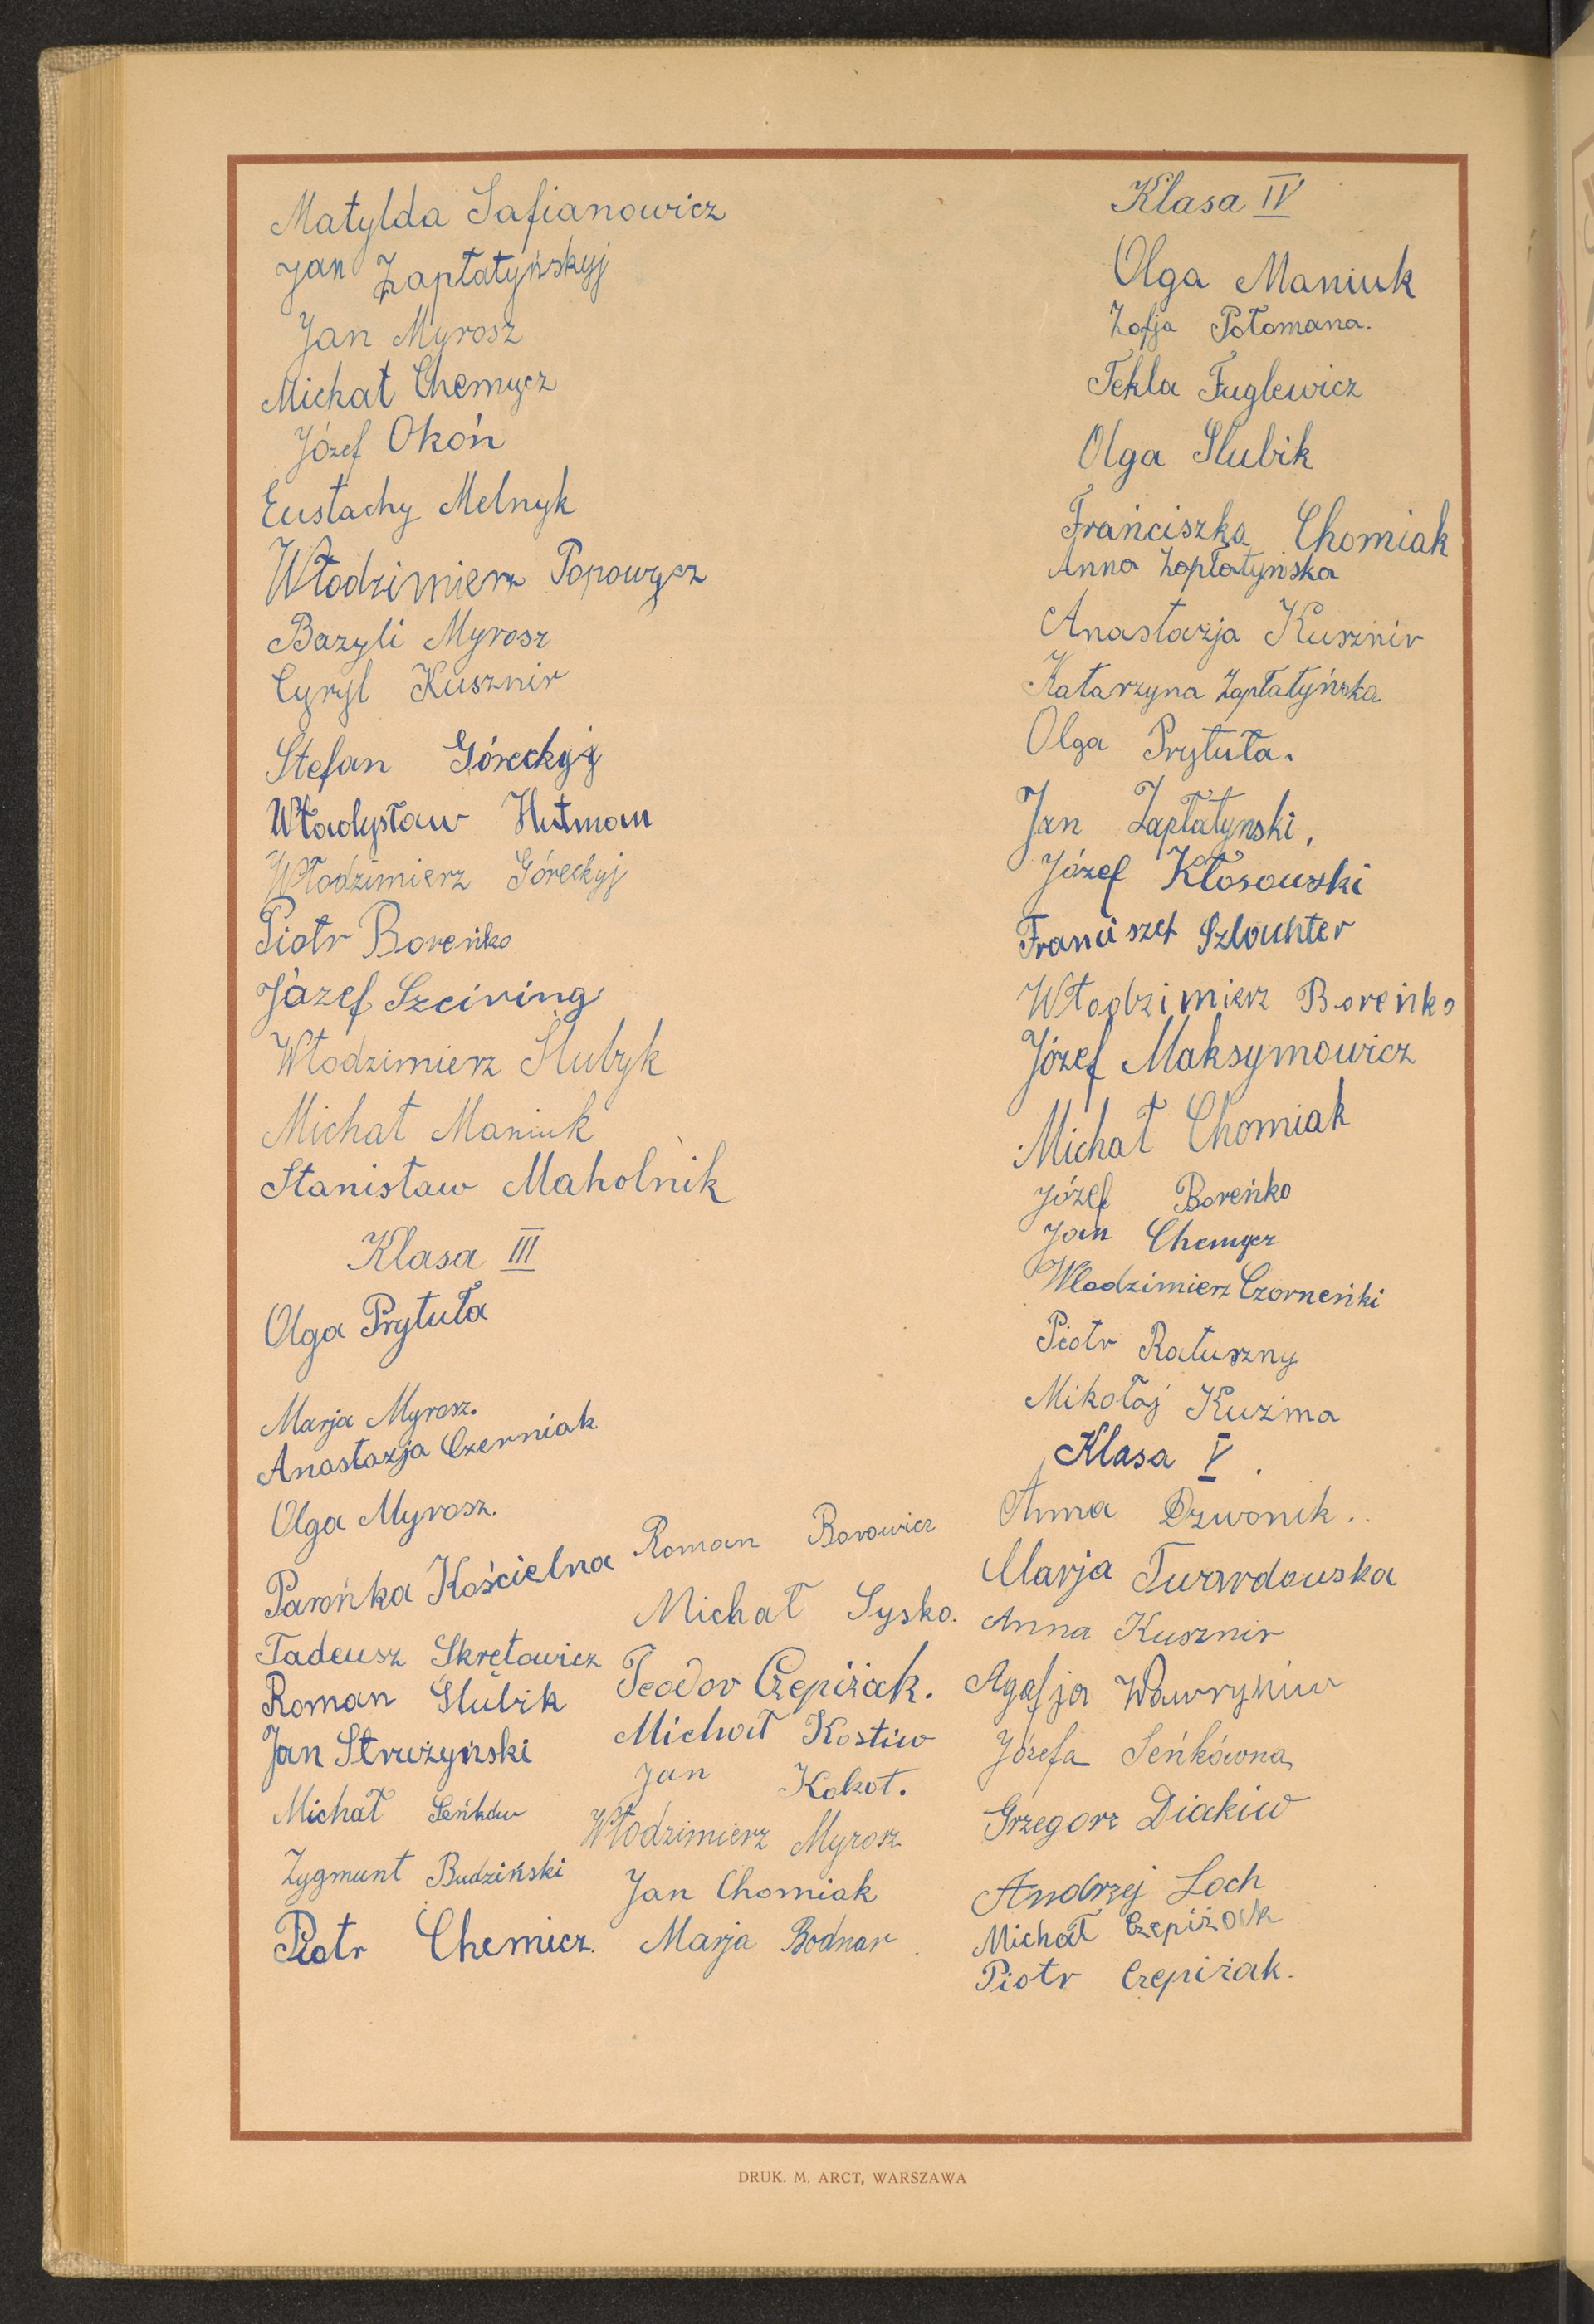 Matylda Safianowicz
Jan Zapłatyńskyj
Jan Myrosz
Michał Chemycz
Józef Okoń
Eustachy Melnyk
Włodzimierz Popowycz
Bazyli Myrosz
Cyryl Kusznir
Stefan Góreckyj
Władysław Hutman
Włodzimierz Góreckyj
Piotr Boreńko
Józef Szeiring
Włodzimierz Slubyk
Michał Maniuk
Stanisław Maholnik
Klasa III
Olga Prytuła
Marja Myrosz.
Anastazja Czerniak
Olga Myrosz.
Parońka Kościelna
Tadeusz Skrętowicz
Roman Slubik
Jan Strużyński
Michał Seńków
Zygmunt Budziński
Piotr Chemicz.
Roman Borowicz
Michał Sysko.
Teodor Czepiżak.
Michał Kostiw
Jan Kokot.
Włodzimierz Myrosz
Jan Chomiak
Marja Bodnar
Klasa IV
Olga Maniuk
Zofja Połomana.
Tekla Fuglewicz
Olga Slubik
Frańciszka Chomiak
Anna Zapłatyńska
Anastazja Kusznir
Katarzyna Zapłatyńska
Olga Prytuła.
Jan Zapłatynski,
Józef Kłosowski
Franciszek Szlachter
Włodzimierz Boreńko
Józef Maksymowicz
Michał Chomiak
Józef Boreńko
Jan Chemycz
Wlodzimierz Czorneńki
Piotr Ratuszny
Mikołaj Kuźma
Klasa V.
Anna Dzwonik..
Marja Twardowska
Anna Kusznir
Agafja Wawrykiw
Józefa Seńkówna
Grzegorz Diakiw
Andrzej Loch
Michał Czepiżak
Piotr Czepiżak.
DRUK. M. ARCT, WARSZAWA